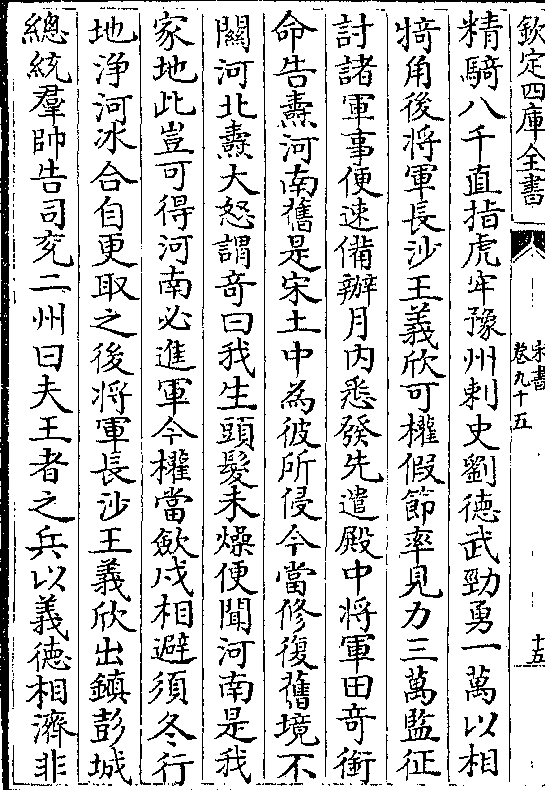 欽定四庫全書
宋書
卷九十五
十五
精騎八千直指虎牢豫州刺史劉德武勁勇一萬以相
犄角後將軍長沙王義欣可權假節率見力三萬監征
討諸軍事便速備辦月内悉發先遣殿中將軍田竒銜
命告燾河南舊是宋土中為彼所侵今當修復舊境不
關河北燾大怒謂竒曰我生頭髮未燥便聞河南是我
家地此豈可得河南必進軍今權當斂戍相避須冬行
地浄河冰合自更取之後將軍長沙王義欣出鎮彭城
總統羣帥告司兖二州曰夫王者之兵以義徳相濟非